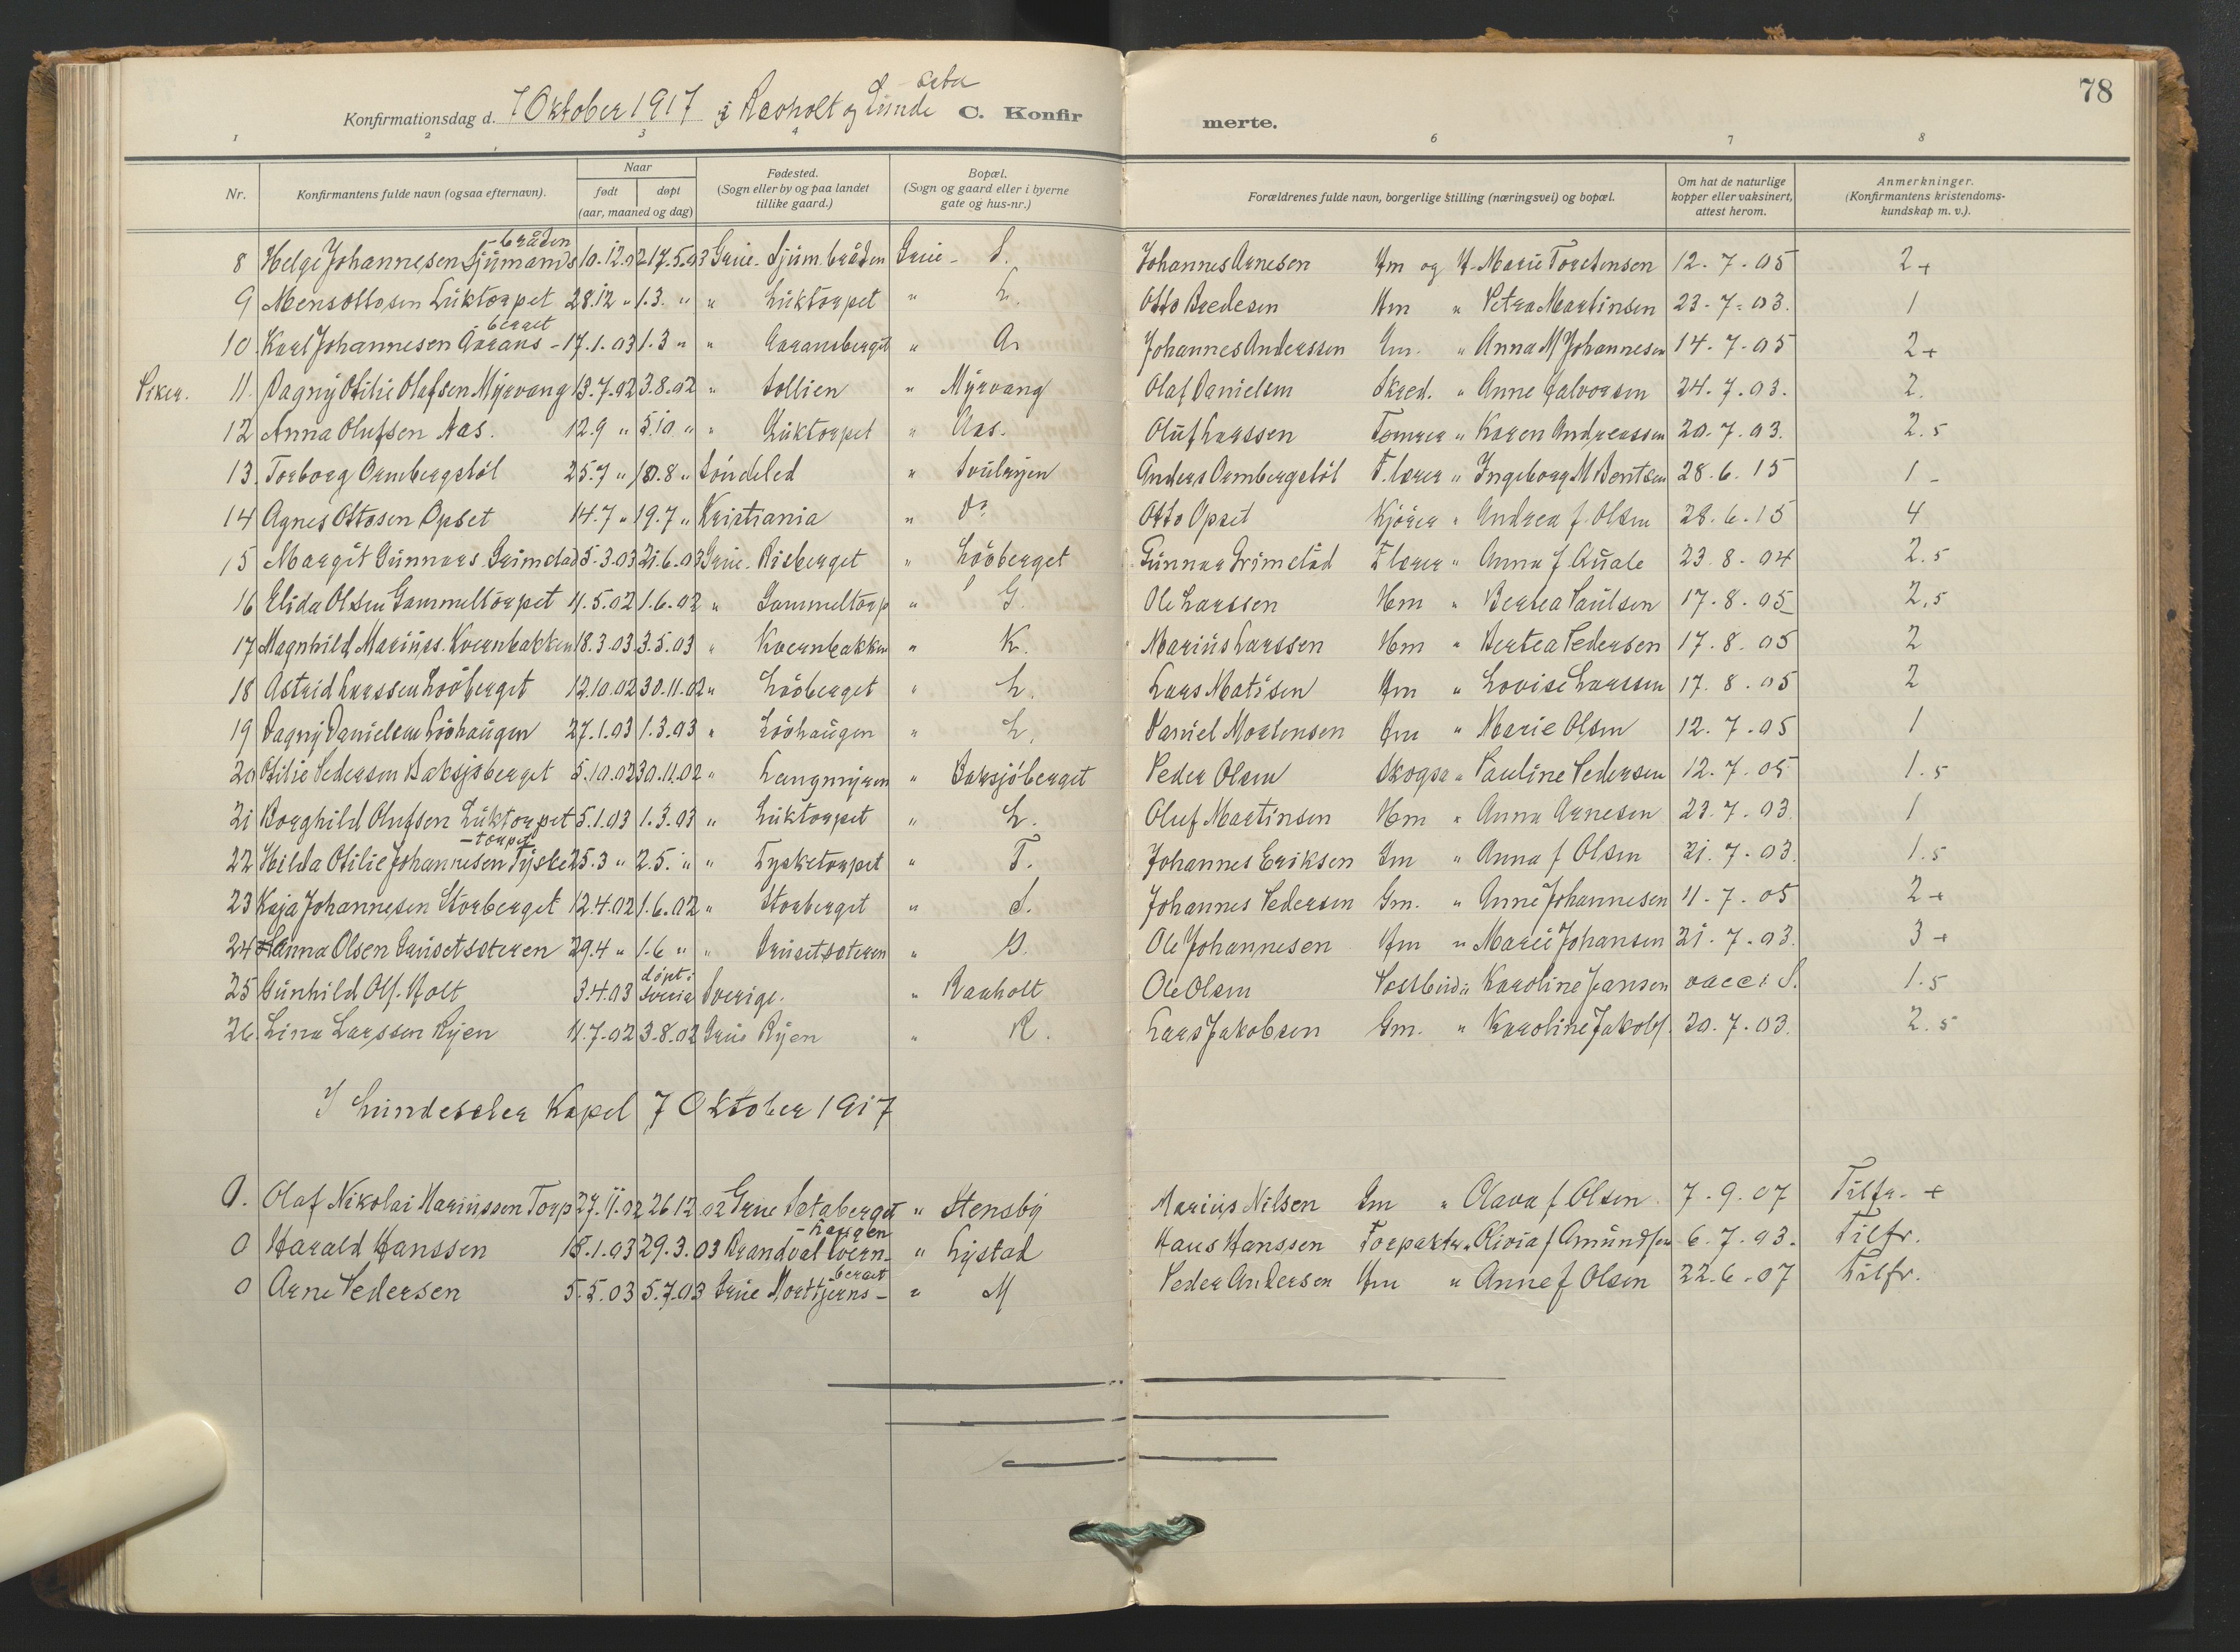 78
Konfirmationsdag d. 7 Oktober 1917 i Revholt og Lunde C. Konfirmerte.
1 2 3 4 6 7 8
Nr. Konfirmantens fulde navn (ogsaa efternavn). Naar født døpt (aar, maaned og dag) Fødested. (Sogn eller by og paa landet tillike gaard.) Bopæl. (Sogn og gaard eller i byerne gate og hus-nr.) Forældrenes fulde navn, borgerlige stilling (næringsvei) og bopæl. Om hat de naturlige kopper eller vaksinert, attest herom. Anmerkninger. (Konfirmantens kristendomskundskap m. v.).
8 Helge Johannesen Sjumans-bråden 10.12.02 17.5.03 Grue - Sjum.bråden Grue - S. Johannes Arnesen Hm og H. Marie Torstensen 12.7.05 2+
9 Mens Ottosen Luktorpet 28.12 " 1.3. " " Luktorpet " L. Otto Bredesen Hm " Petra Martinsen 23-7-03. 1
10. Karl Johannesen Aarans-berget 17.1.03 1.3 " " Aaransberget " A. Johannes Anderssen Gm. " Anna M Johannesen 14-7-05 2+
11. Dagny Otilie Olafsen Myrvang 13.7.02 3.8.02 " Sollien " Myrvang Olaf Danielsen Skred. " Anne Halvorsen 24-7-03. 2.
12 Anna Olufsen Aas. 12.9 " 5.10 " " Luktorpet " Aas. Oluf Larssen Tømrer " Karen Andreassen 20.7.03. 2.5
13. Torborg Ormbergstöl 25.7 " 10.8 " Söndeled " Svulryen Anders Ormbergstöl F.lærer " Ingeborg M Bentsen 28.6.15 1 -
14 Agnes Ottosen Opset 14.7 " 19.7 " Kristiania " Do Otto Opset Kjörer " Andrea f. Olsen 28.6.15 4
15 Margit Gunnars. Grimstad 5.3.03 21.6.03 Grue - Risberget " Lööberget Gunnar Grimstad F lærer " Anna f. Quale 23.8-04 2.5
16 Elida Olsen Gammeltorpet 4.5.02 1.6.02 " Gammeltorp " G. Ole Larssen Hm " Bertea Paulsen 17-8-05 2,5
17 Magnhild Mariuss. Kvernbakken 18.3.03 3.5.03 " Kvernbakken " K. Marius Larssen Hm " Bertea Pedersen 17.8.05 2
18 Astrid Larssen Lööberget 12.10.02 30.11.02 " Lööberget " L. Lars Matisen Hm " Lovise Larssen 17.8.05 2
19 Dagny Danielsen Lööhaugen 27.1.03 1.3.03 " Lööhaugen " L. Daniel Mortensen Hm " Marie Olsen 12.7.05 1
20 Otilie Pedersen Baksjöberget 5.10.02 30.11.02 " Langmyren " Baksjöberget Peder Olsen Skogsa " Pauline Pedersen 12.7.05 1.5
21 Borghild Olufsen Luktorpet 5.1.03 1.3.03 " Luktorpet " L. Oluf Martinsen Hm " Anna Arnesen 23.7.03. 1
22 Hilda Otilie Johannesen Tyske-torpet 25.3 " 2.5. " " Tysketorpet " T. Johannes Eriksen Gm " Anna f Olsen 21.7.03. 1.5
23 Kaja Johannesen Storberget 12.4.02 1.6.02 " Storberget " S. Johannes Pedersen Gm. " Anne Johannesen 11-7.05 2+
24 Hanna Olsen Grusetsæteren 29.4 " 1.6 " " Grusetsæteren " G. Ole Johannesen Hm " Marie Johansen 21.7.03. 3+
25 Gunhild Ols. Holt 3.4.03 döpt i Sverig Sverige. " Ravholt Ole Olsen Postbud " Karoline Jeansen vacc i S. 1.5
26. Lina Larssen Ryen 11.7.02 3.8.02 Grue Ryen " R. Lars Jakobsen Gm. " Karoline Jakobs. 20.7.03. 2.5
I Lundesæter Kapel 7 Oktober 1917
0. Olaf Nikolai Mariussen Torp 27.11.02 26.12.02 Grue Sætaberget " Stensby Marius Nilsen Gm " Olava f Olsen 7.9.07 Tilfr. +
0 Harald Hanssen 18.1.03 29.3.03 Brandval Kvern-haugen " Lystad Hans Hanssen Forpakter " Olivia f Amundsen 6.7.03. Tilfr.
0 Arne Pedersen 5.5.03 5.7.03 Grue Morttjerns-berget " M Peder Andersen Hm " Anne f Olsen 22.6-07 Tilfr.